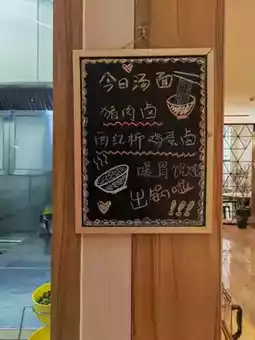 今日汤面
猪肉卤
西红柿鸡蛋卤
暖胃馄饨
出锅啦